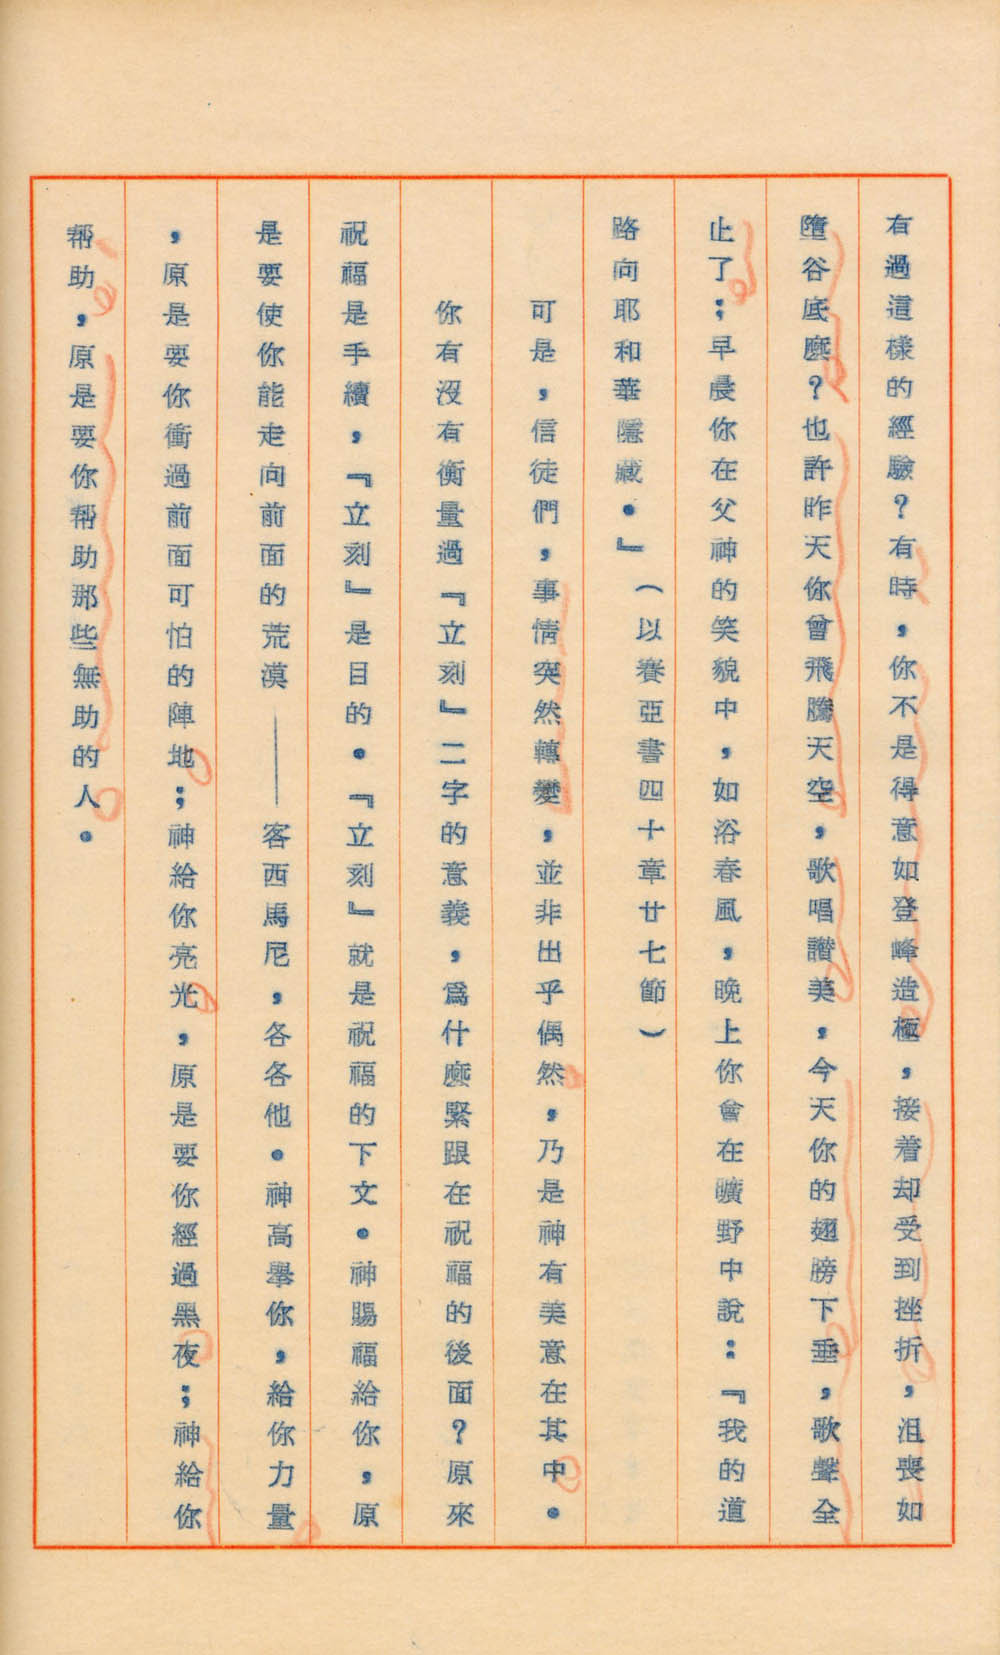 有過這樣的經驗？有時，你不是得意如登峰造極，接着却受到挫折，沮喪如
墮谷底麼？也許昨天你曾飛騰天空，歌唱讚美，今天你的翅膀下垂，歌聲全
止了；早晨你在父神的笑貌中，如浴春風，晚上你會在曠野中說：『我的道
路向耶和華隱藏。』（以賽亞書四十章廿七節）
可是，信徒們，事情突然轉變，並非出乎偶然，乃是神有美意在其中。
你有沒有衡量過『立刻』二字的意義，爲什麼緊跟在祝福的後面？原來
祝福是手續，『立刻』是目的。『立刻』就是祝福的下文。神賜福給你，原
是要使你能走向前面的荒漠——客西馬尼，各各他。神高舉你，給你力量
，原是要你衝過前面可怕的陣地；神給你亮光，原是要你經過黑夜；神給你
帮助，原是要你帮助那些無助的人。